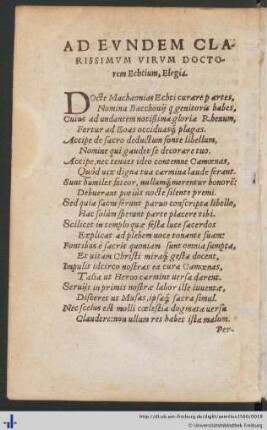 AD EVNDEM CLA-
RISSIMVM VIRVM DOCTO-
rem Echtium, Elegia.
DOcte Machaonias Echti curare partes,
Nomina Bacchouij q̃ genitoris habes,
Cuius ad undantem notißima gloria Rhenum,
Fertur ad Eoas occiduasq́; plagas.
Accipe de sacro deductum fonte libellum,
Nomine qui gaudet se decorare tuo.
Accipe, nec tenues ideo contemne Camœnas,
Quòd uix digna tua carmina laude ferant.
Sunt humiles fateor, nullumq́; merentur honorē
Debuerant potius nocte silente premi.
Sed quia sacra ferunt paruo conscripta libello,
Hac solùm sperant parte placere tibi.
Scilicet in templo quæ festa luce sacerdos
Explicat ad plebem uoce tonante suam
Fontibus è sacris quoniam sunt omnia sumpta,
Et uitam Christi miraq́; gesta docent,
Impulit idcirco nostras ea cura Camœnas,
Talia ut Heroo carmine uersa darent.
Seruijt in primis nostræ labor ille iuuentæ,
Disceret ut Musas, ipsaq́; sacra simul.
Nec scelus est molli cœlestia dogmata uersu
Claudere: non ullum res habet ista malum.
Per-
http://dl.ub.uni-freiburg.de/diglit/
Universitätsbibliothek Freiburg